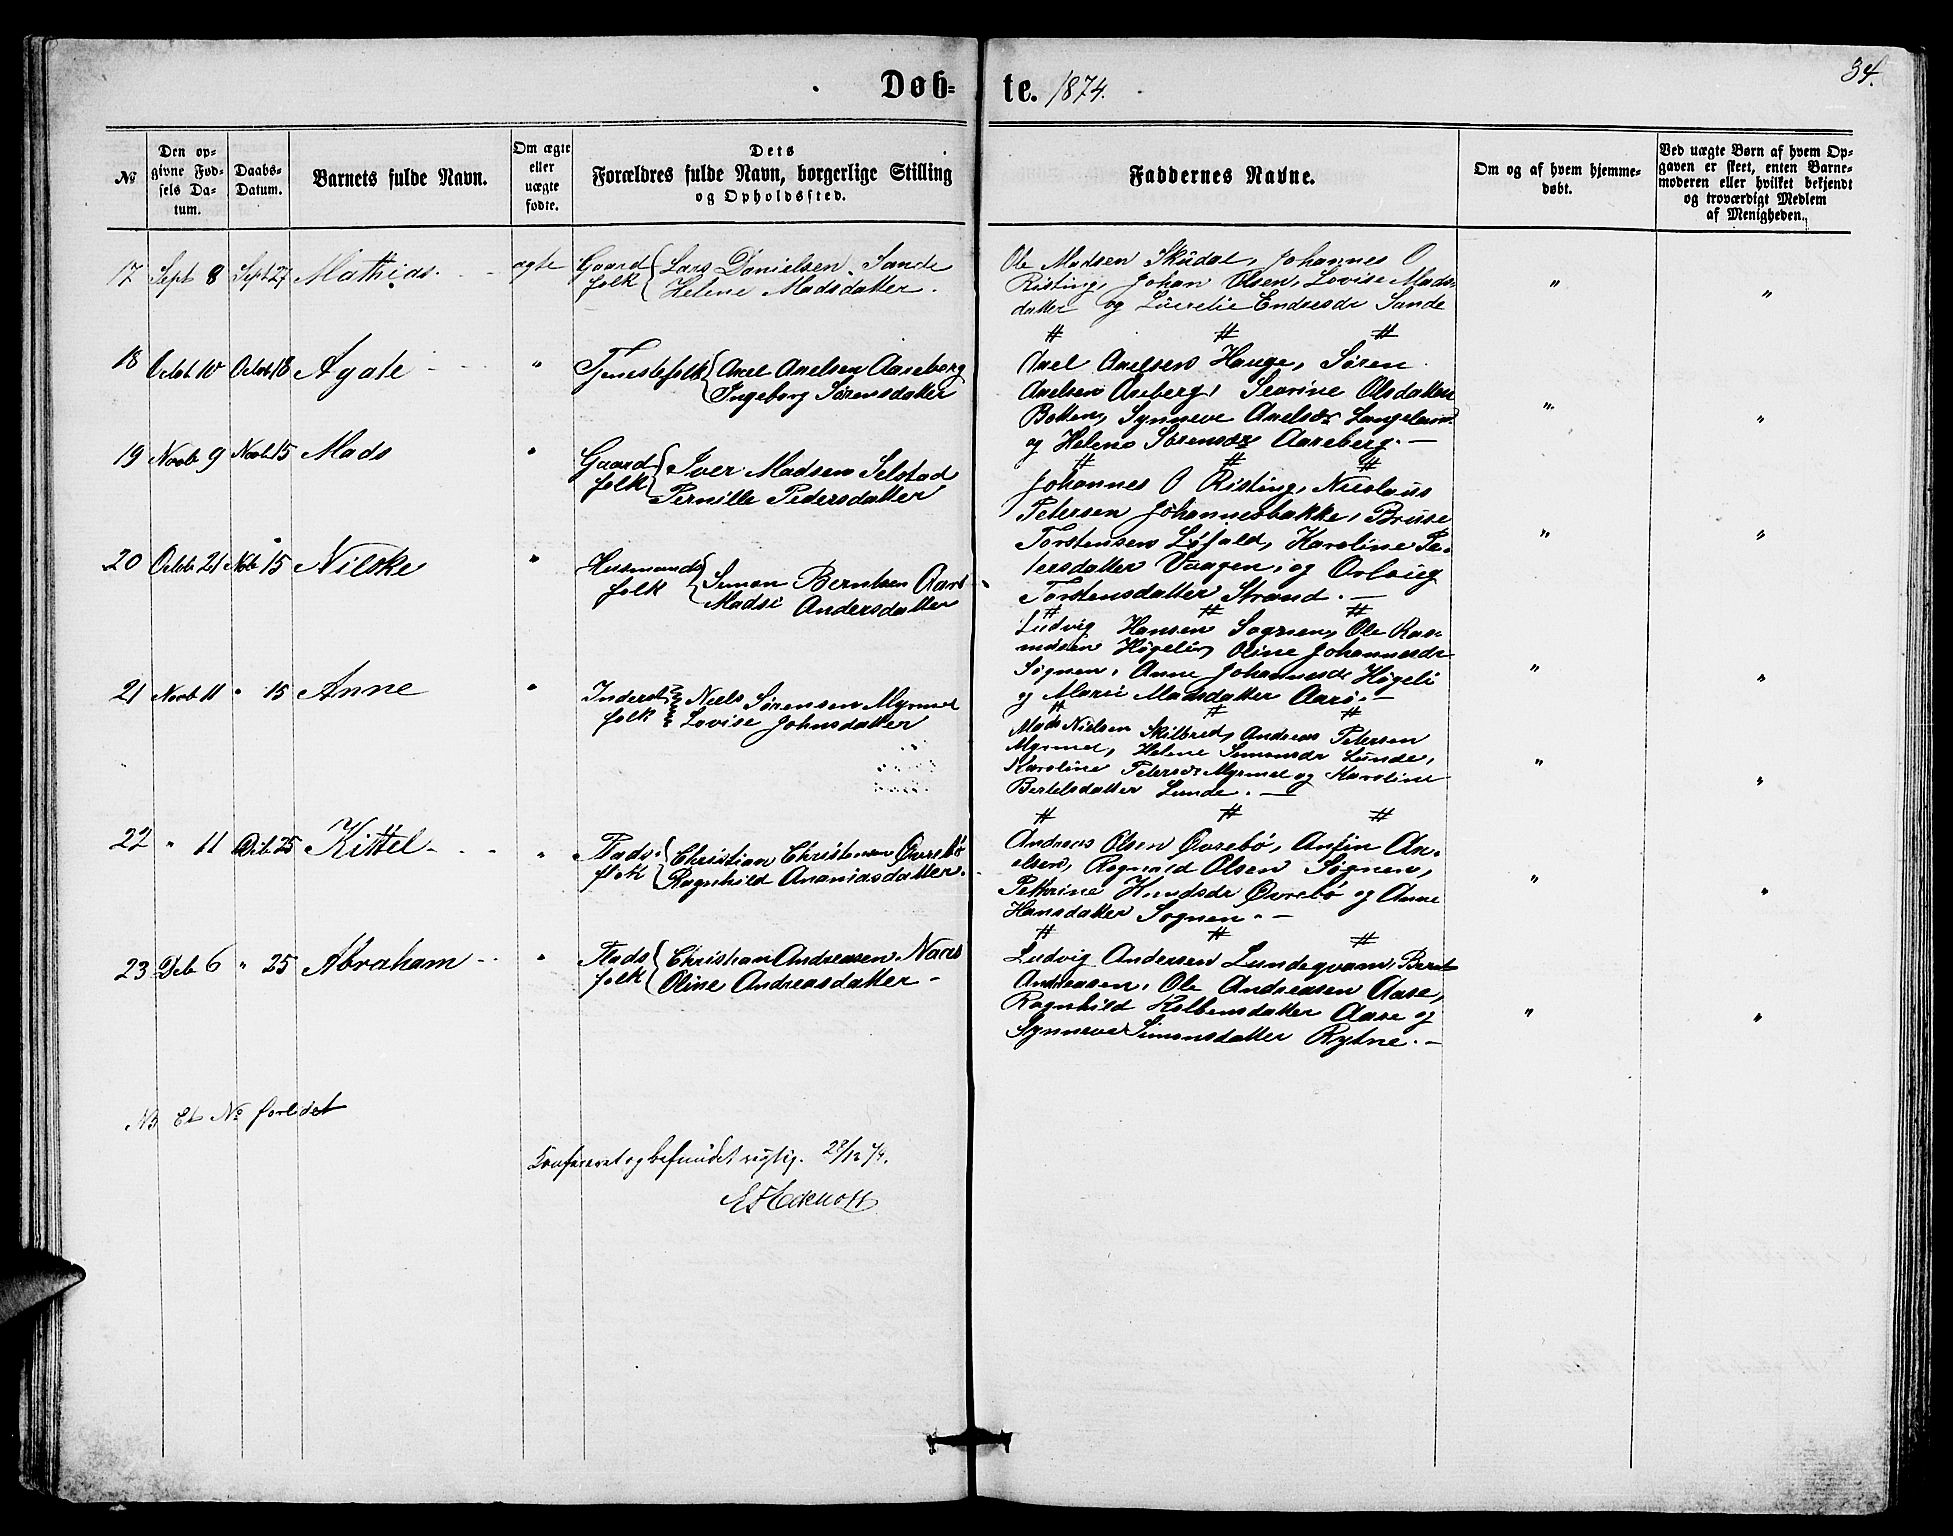 Døb=te. 1874.
34.
№
Den op=
givne Fød=
sels Da=
tum.
Daabs=
Datum.
Barnets fulde Navn.
Om ægte
eller
uægte
fødte.
Dets
Forældres fulde Navn, borgerlige Stilling
og Opholdssted.
Faddernes Navne.
Om og af hvem hjemme=
døbt.
Ved uægte Børn af hvem Op=
gaven er skeet, enten Barne=
moderen eller hvilket bekjendt
og troværdigt Medlem
af Menigheden.
17 Sept 8 Sept 27 Mathias. ægte Gaard
folk
Lars Danielsen Sande
Helene Madsdatter.
Ole Madsen Skudal, Johannes O
Risting, Johan Olsen, Lovise Mads=
datter og Endresdr Sande
" "
# # #
18 Octob 10 Octob 18 Agate " Tjenestefolk
Axel Axelsen Aareberg
Ingeborg Sørensdatter
Axel Axelsen Hauge, Søren
Axelsen Aaeberg, Sevrine Olsdatter
Botten, Synneve Axelsdr Langeland
og Helene Sørensdr Aareberg. —
" "
# # #
19 Novb 9 Novb 15 Mads " Gaard
folk
Iver Madsen Selstad
Pernille Pedersdatter
Johannes O Risting, Nicolaus
Petersen Johannesbakke, Bruse
Torstensen Løfald, Karoline Pe-
tersdatter Vaagen, og Ovlaug
Torstensdatter Strand. —
" "
# # #
20 Octob 21 Nob 15 Nilske " Husmands
folk
Simon Berntsen Aarø
Madsi Andersdatter
Ludvig Hansen Sognen, Ole Ras-
musen Høgeli, Oline Johannesdr
Sognen, Anne Johannesdr Høgeli
og Marie Madsdatter Aarø. —
" "
# # #
21 Novb 11 " 15 Anne " Inderst
folk
Niels Sørensen Myrmel
Lovise Johnsdatter
Mads Nielsen Skilbred, Andreas Petersen
Myrmel, Helene Simonsdr Lunde,
Karoline Petersdr Myrmel og Karoline
Bertelsdatter Lunde. —
" "
# # #
22 " 11 Deb 25 Kittel " Plads
folk
Christian Christensen Øvrebø
Ragnhild Ananiasdatter.
Andreas Olsen Øvrebø, Anfin An-
Ragnald Olsen Sognen,
Petkrine Knudsdr Øvrebø og Anne
Hansdatter Sognen. —
" "
# # #
23 Deb 6 " 25 Abraham " Plads
folk
Christian Andreasen Naas
Oline Andreasdatter
Ludvig Andersen Lundeqvam, Bernt
Andreasen, Ole Andreasen Aase,
Ragnhild Kolbensdatter Aase og
Synneve Simonsdatter Rytne. —
" "
NB Et No
Confereret og befundet rigtig. 28/12 74.